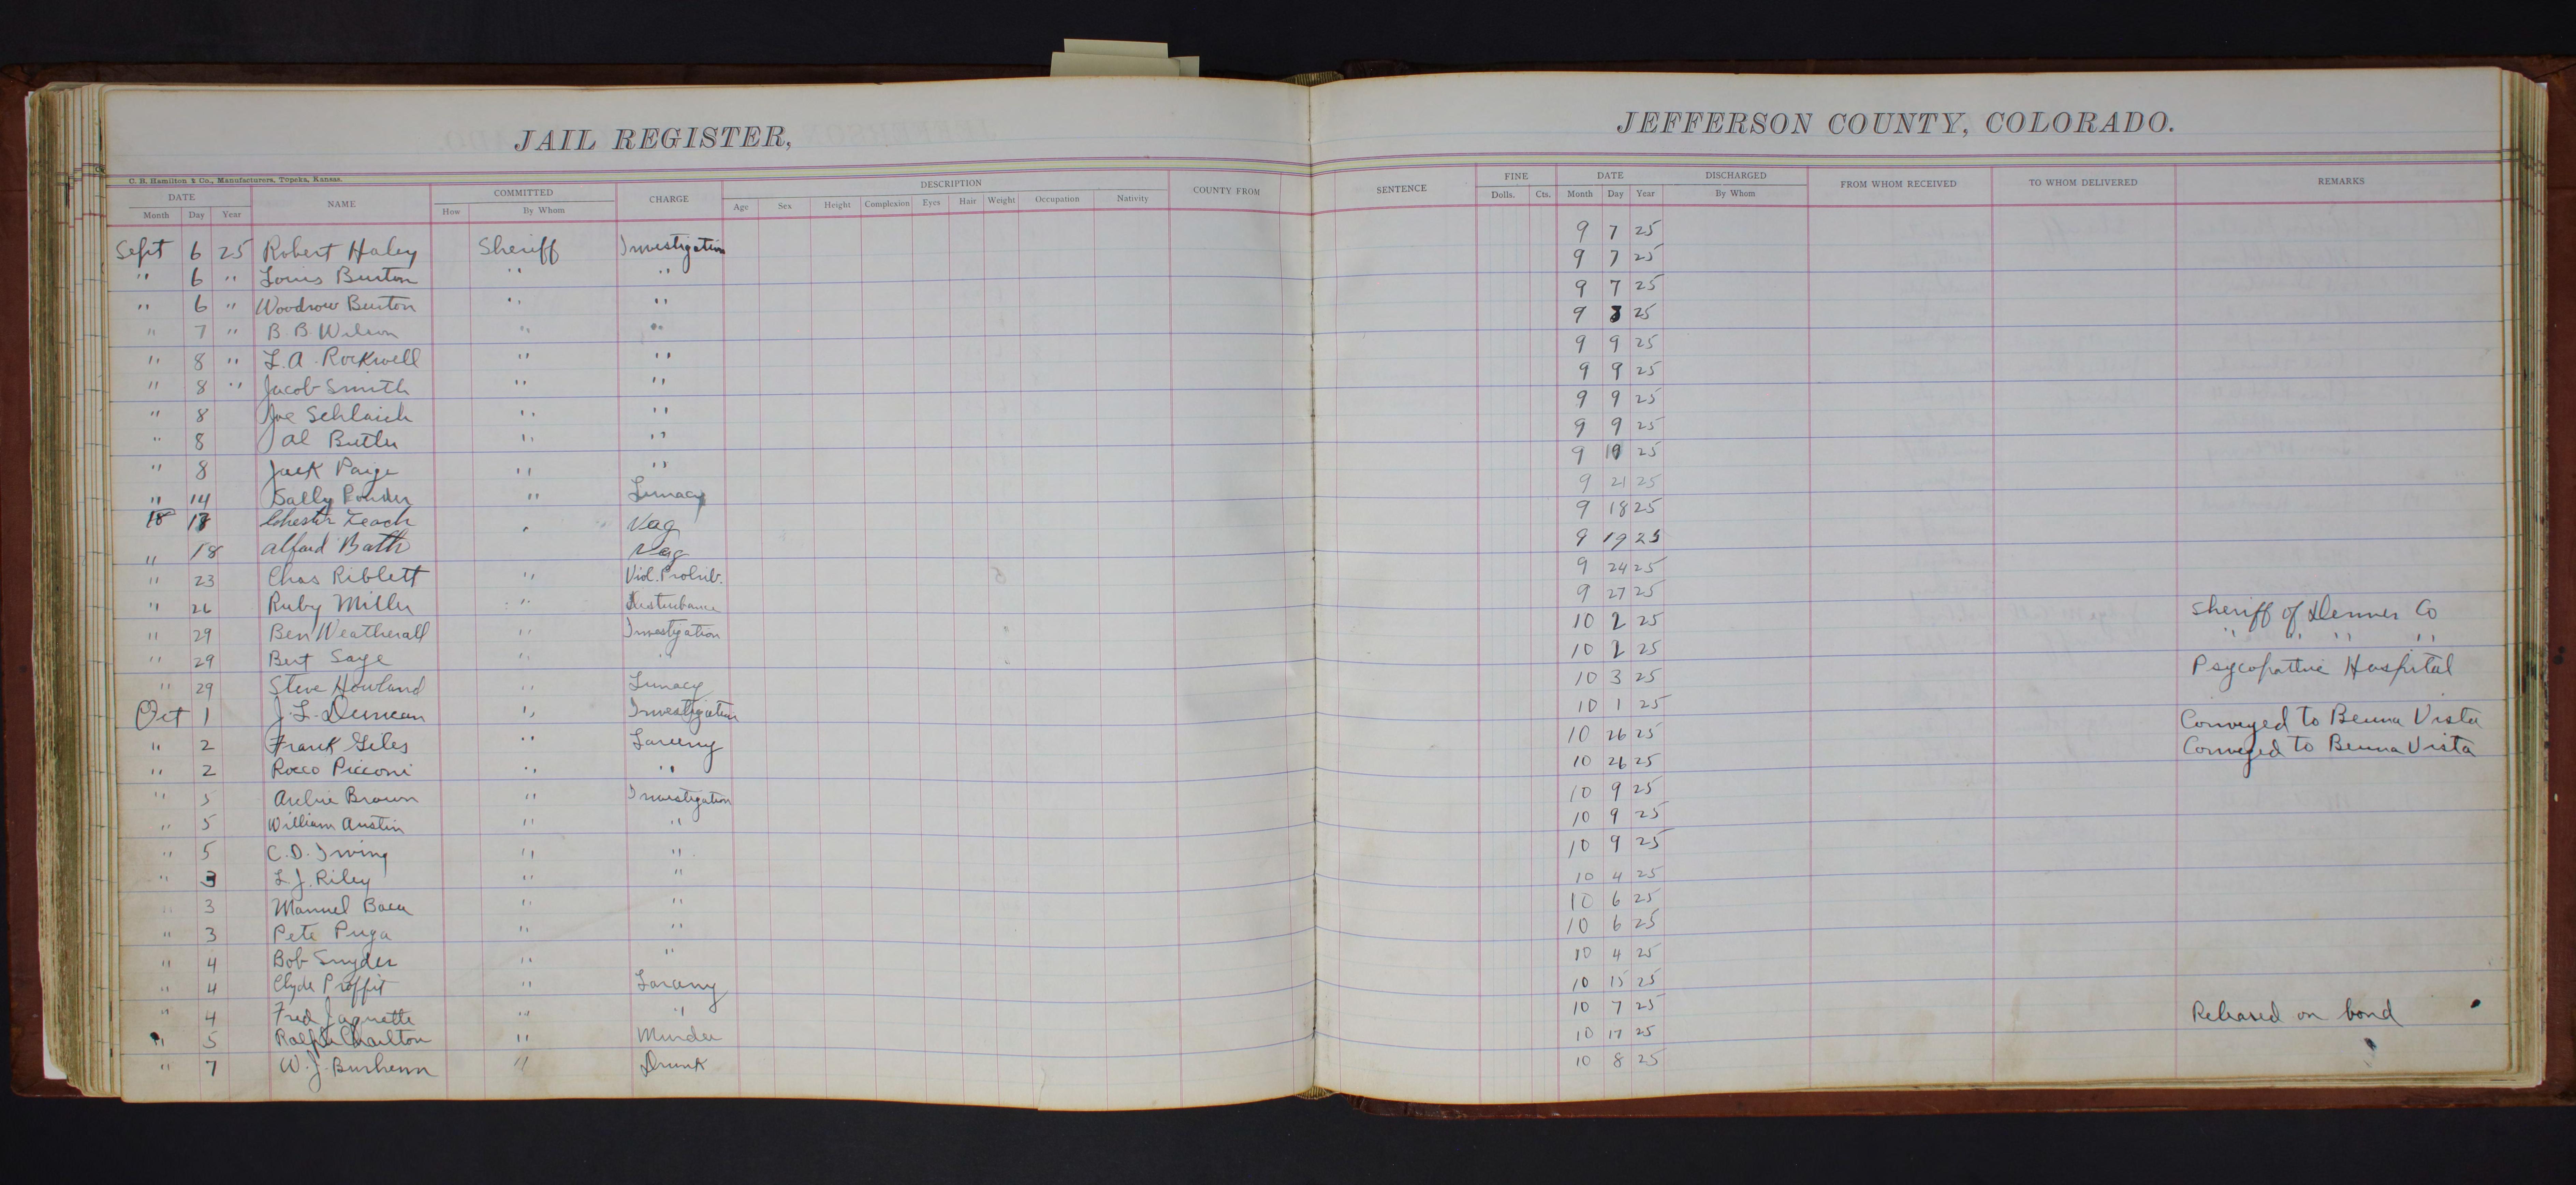 JAIL REGISTER,
JEFFERSON COUNTY, COLORADO.
C. B. Hamilton & Co., Manufacturers, Topeka, Kansas.
DATE NAME COMMITTED CHARGE DESCRIPTION COUNTY FROM SENTENCE FINE DATE DISCHARGED FROM WHOM RECEIVED TO WHOM DELIVERED REMARKS
Month Day Year How By Whom Age Sex Height Complexion Eyes Hair Weight Occupation Nativity Dolls. Cts. Month Day Year By Whom
Sept 6 25 Robert Haley Sheriff Investigation 9 7 25
" 6 " Louis Burton " " 9 7 25
" 6 " Woodrow Burton " " 9 7 25
" 7 " B. B Wilson " " 9 8 25
" 8 " L. A. Rockwell " " 9 9 25
" 8 " Jacob Smith " " 9 9 25
" 8 Joe Schlaich " " 9 9 25
" 8 Al Butler " " 9 9 25
" 8 Jack Paige " " 9 25
" 14 Sally " Lunacy 9 21 25
18 Chester " Vag 9 18 25
" 18 Alford Bath Vag 9 19 25
" 23 Chas Riblett " Viol. Prohib. 9 24 25
" 26 Ruby Miller " Disturbance 9 27 25
" 29 Ben Weatherall " Investigation 10 2 25 Sheriff of Denver Co
" 29 Bert Saye " " 10 2 25 " " " "
" 29 Steve Howland " Lunacy 10 3 25 Psycopathic Hospital
Oct 1 J. L. Duncan " Investigation 10 1 25
" 2 Frank Giles " Larceny 10 26 25 Conveyed to Beuna Vista
" 2 Rocco Picconi " " 10 26 25 Conveyed to Beuna Vista
" 5 Archie Brown " Investigation 10 9 25
" 5 William Austin " " 10 9 25
" 5 C. D. Irving " " 10 9 25
" 3 L. J. Riley " " 10 4 25
" 3 Manuel Baca " " 10 6 25
" 3 Pete Puga " " 10 6 25
" 4 Bob Snyder " " 10 4 25
" 4 Clyde Proffit " Larceny 10 15 25
" 4 Fred Jaquette " " 10 7 25 Released on bond
" 5 Ralph Charlton " Murder 10 17 25
" 7 W. J. " Drunk 10 8 25